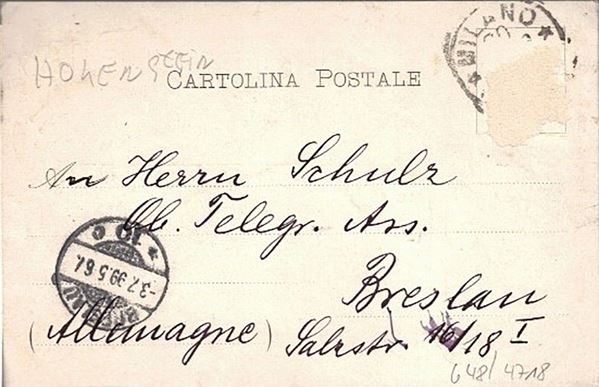 MILANO
HOHENSTEIN
CARTOLINA POSTALE
An Herrn Schulz
Ob. Telegr. Ass.
Breslau
(Allemagne) Salzstr. 16/18 I
BRESLAU
3.7.99.5.6
648/4718